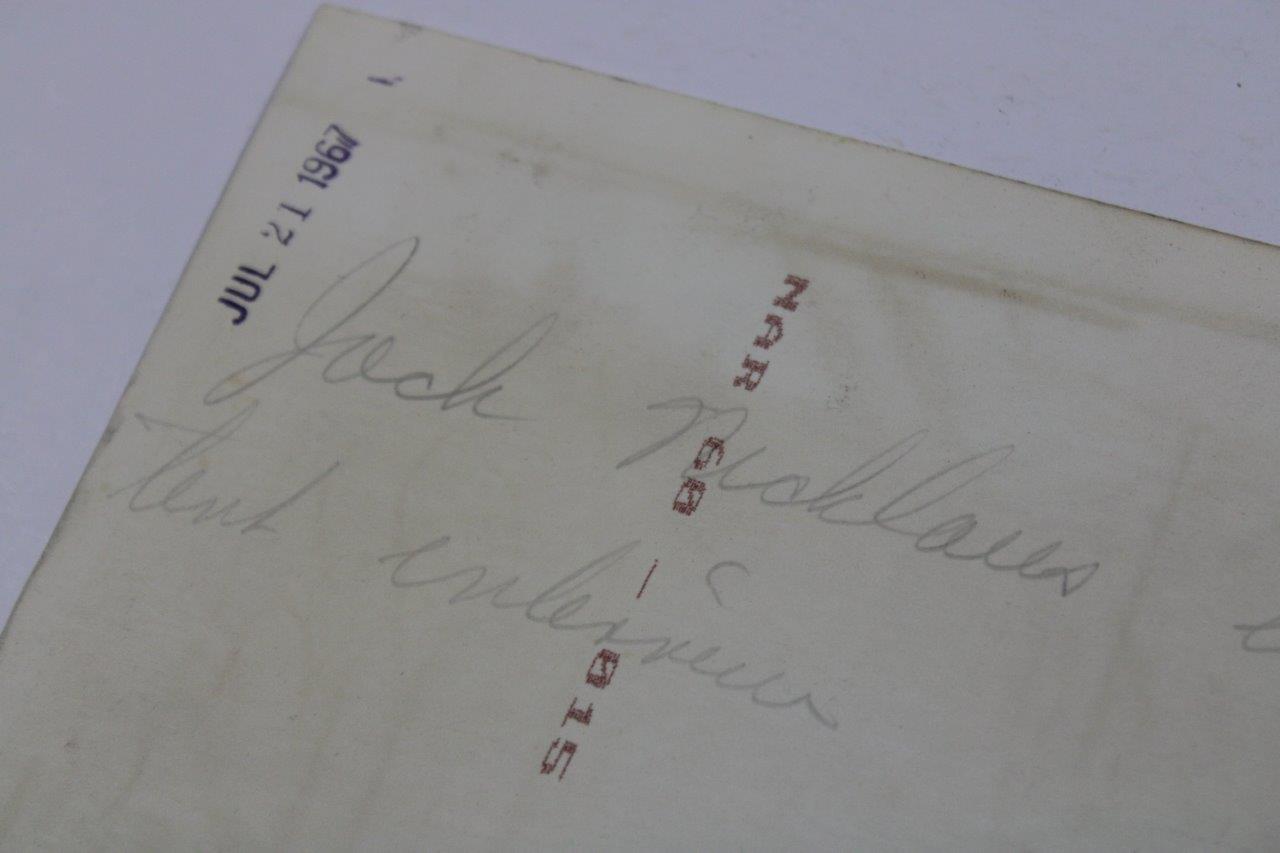 JUL 21 1967
Jack Nicklaus
Tent interview
NAR 60 — 015